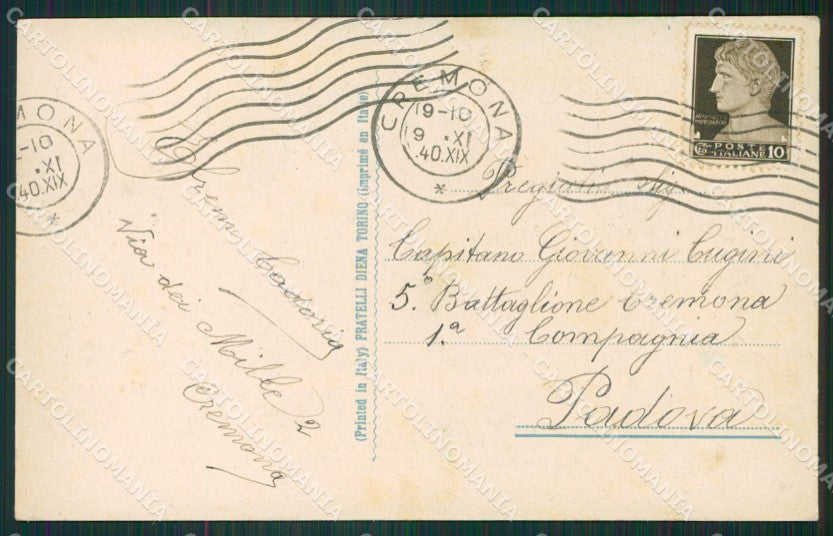 CREMONA
19-10
9 XI
40.XIX
*
MONA
-10
.XI
40.XIX
*
POSTE
ITALIANE 10
Capitano Giovanni Cugini
5.° Battaglione Cremona
1.ª Compagnia
Padova
Via dei Mille 2
Cremona
(Printed in Italy) FRATELLI DIENA TORINO (Imprimé en Italie)
CARTOLINOMANIA